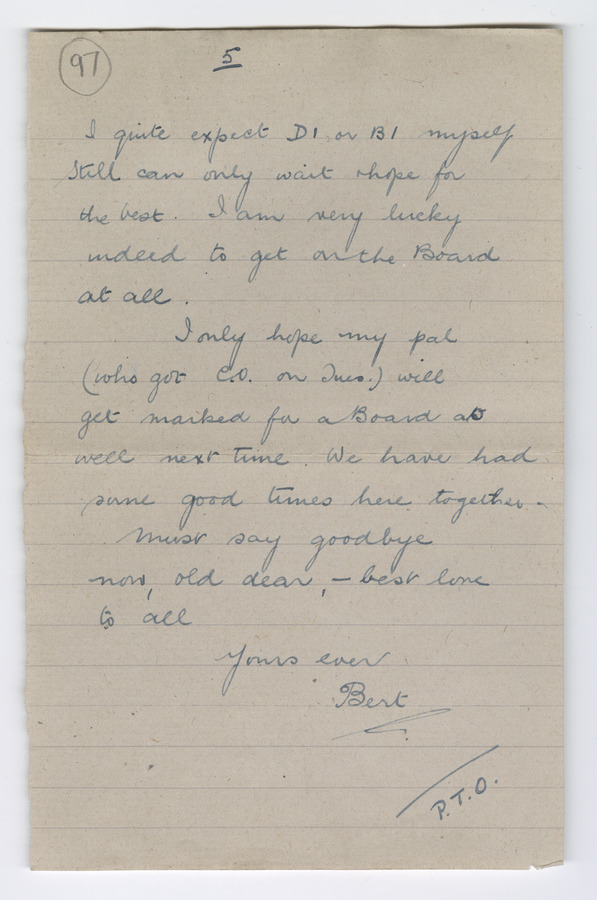 97
5
I quite expect D1, or B1 myself
Still can only wait & hope for
the best. I am very lucky
indeed to get on the Board
at all.
I only hope my pal
(who got C.O. on Tues.) will
get marked for a Board as
well next time. We have had
some good times here together.
Must say goodbye
now, old dear, - best love
to all
Yours ever
Bert
P.T.O.